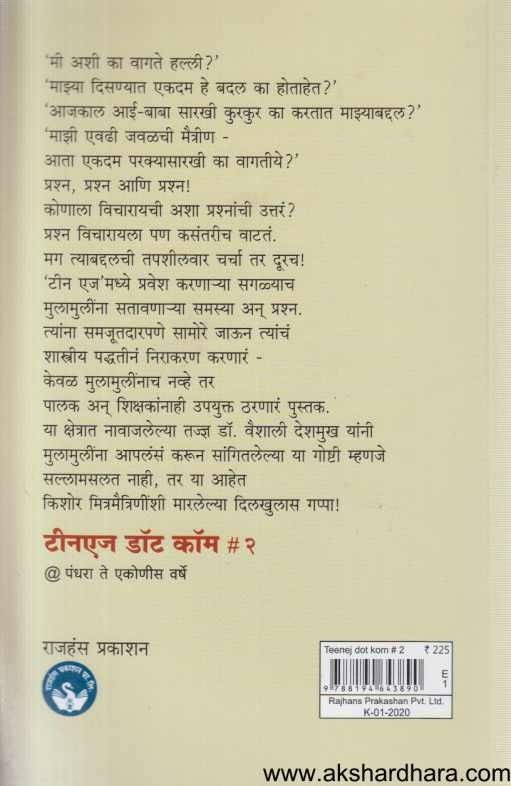 'मी अशी का वागते हल्ली?'
'माझ्या दिसण्यात एकदम हे बदल का होताहेत?'
'आजकाल आई-बाबा सारखी कुरकुर का करतात माझ्याबद्दल?'
'माझी एवढी जवळची मैत्रीण -
आता एकदम परक्यासारखी का वागतीये?'
प्रश्न, प्रश्न आणि प्रश्न!
कोणाला विचारायची अशा प्रश्नांची उत्तरं?
प्रश्न विचारायला पण कसंतरीच वाटतं.
मग त्याबद्दलची तपशीलवार चर्चा तर दूरच!
'टीन एज'मध्ये प्रवेश करणाऱ्या सगळ्याच
मुलामुलींना सतावणाऱ्या समस्या अन् प्रश्न.
त्यांना समजूतदारपणे सामोरे जाऊन त्यांचं
शास्त्रीय पद्धतीनं निराकरण करणारं -
केवळ मुलामुलींनाच नव्हे तर
पालक अन् शिक्षकांनाही उपयुक्त ठरणारं पुस्तक.
या क्षेत्रात नावाजलेल्या तज्ज्ञ डॉ. वैशाली देशमुख यांनी
मुलामुलींना आपलंसं करून सांगितलेल्या या गोष्टी म्हणजे
सल्लामसलत नाही, तर या आहेत
किशोर मित्रमैत्रिणींशी मारलेल्या दिलखुलास गप्पा!
टीनएज डॉट कॉम # २
@ पंधरा ते एकोणीस वर्षे
राजहंस प्रकाशन
Teenej dot kom # 2 ₹ 225
E
1
9 788194 643890
Rajhans Prakashan Pvt. Ltd.
K-01-2020
www.akshardhara.com